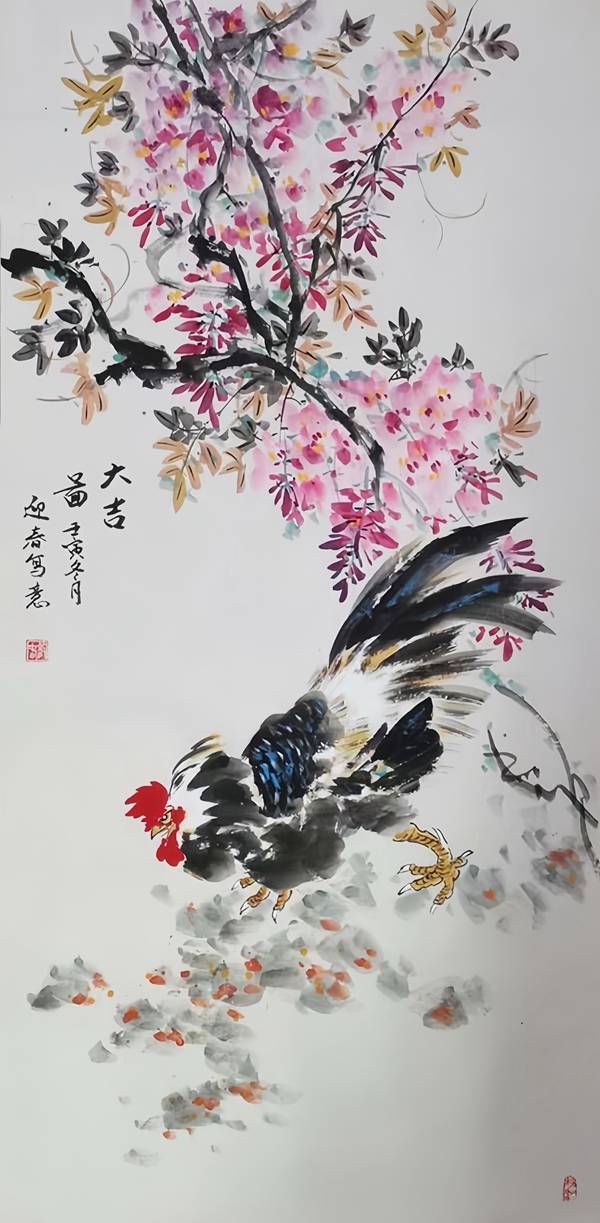 大吉
图壬寅冬月
迎春写意